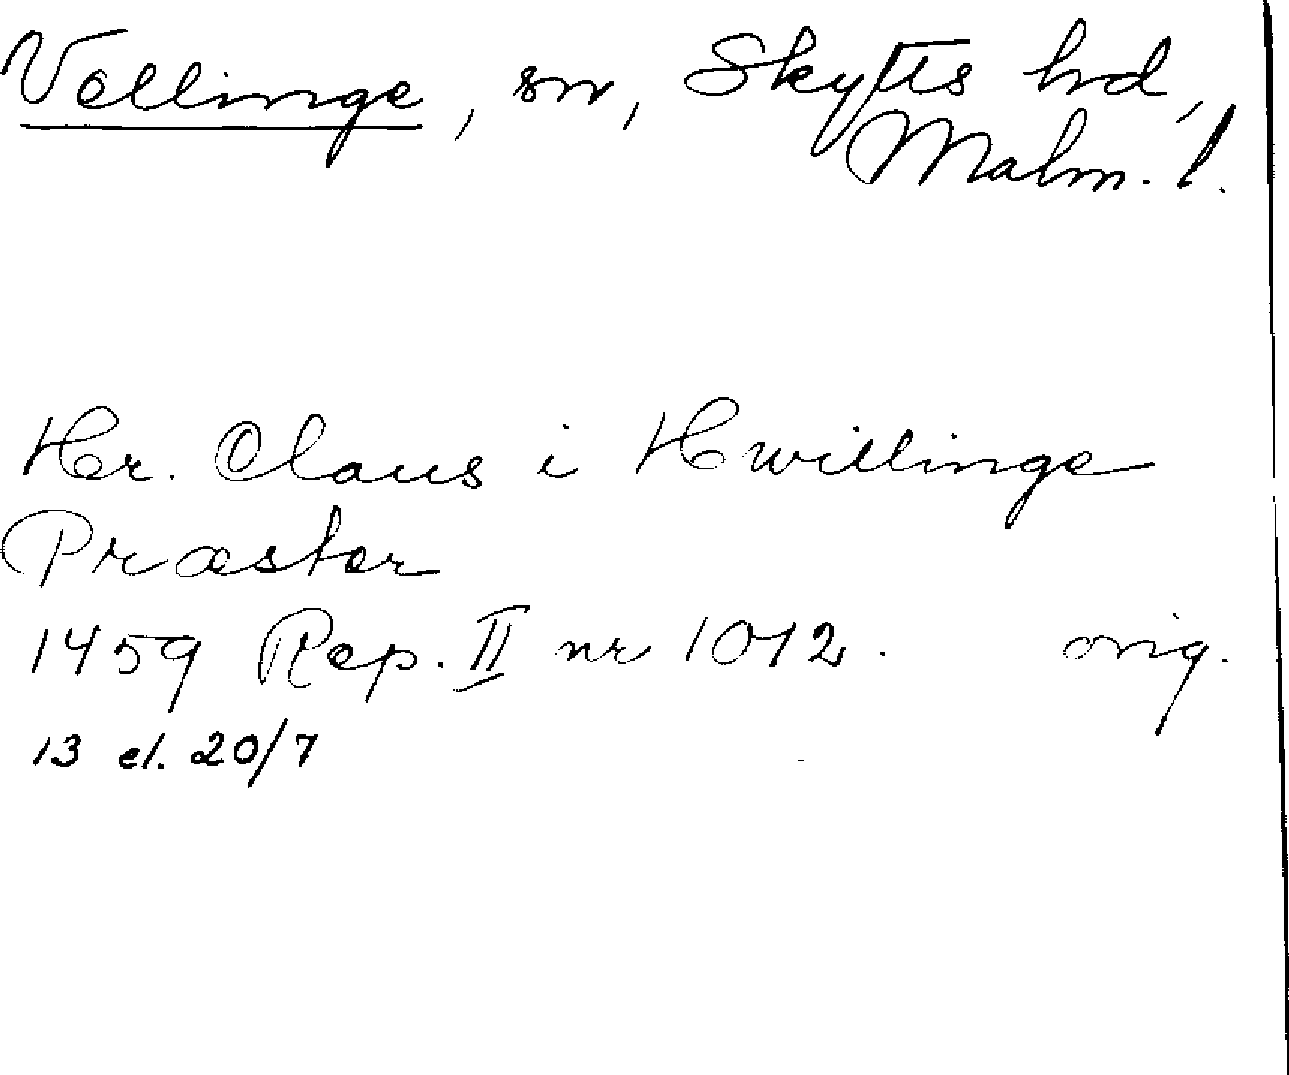 Vellinge, sn, Skytts hd,
Malm. l.
Her. Claus i Hwillinge
Præster
1459 Rep. II nr 1012. orig.
13 el. 20/7